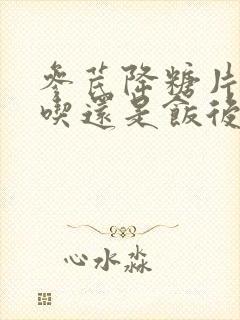 參芪降糖片
喫還是飯後
心水淼